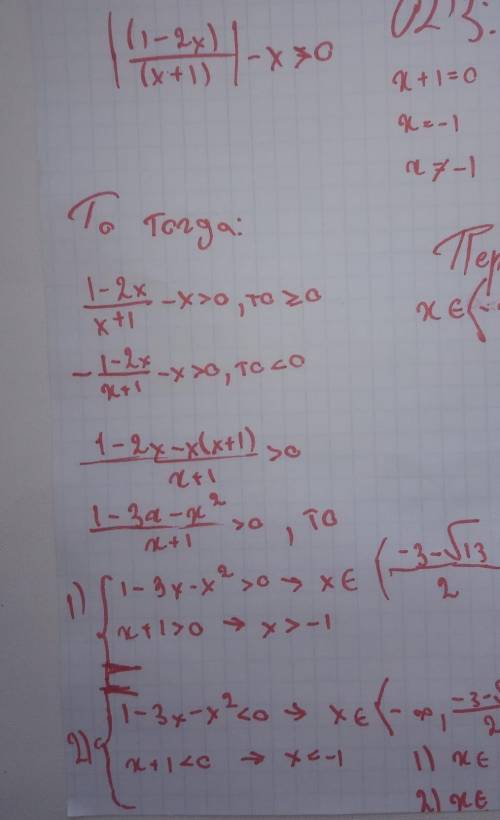 |(1-2x)/(x+1)| - x > 0
ОДЗ:
x+1=0
x=-1
x≠-1
То тогда:
(1-2x)/(x+1) - x > 0, то ≥ 0
-(1-2x)/(x+1) - x > 0, то < 0
x ∈ (-
(1-2x-x(x+1))/(x+1) > 0
(1-3x-x²)/(x+1) > 0, то
1) { 1-3x-x² > 0 → x ∈ ((-3-√13)/2
x+1 > 0 → x > -1
2) { 1-3x-x² < 0 → x ∈ (-∞, (-3-√
x+1 < 0 → x < -1
1) x ∈
2) x ∈